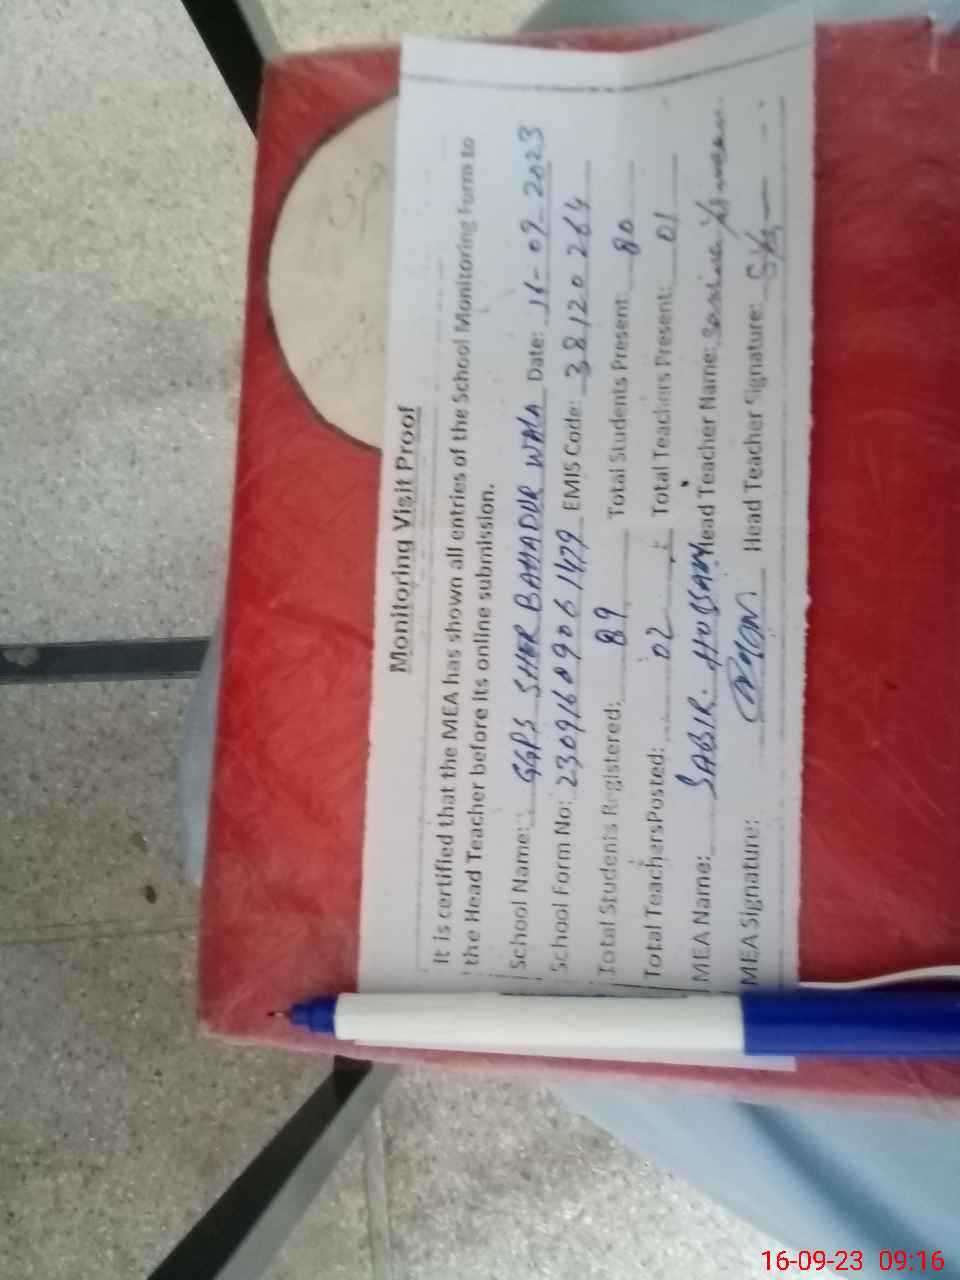 Monitoring Visit Proof
It is certified that the MEA has shown all entries of the School Monitoring Form to
the Head Teacher before its online submission.
School Name: GGPS SHER BAHADUR WALA Date: 16-09-2023
School Form No: 23091609061479 EMIS Code: 38120264
Total Students Registered: 89 Total Students Present: 80
Total TeachersPosted: 02 Total Teachers Present: 01
MEA Name: SABIR HUSSAIN Head Teacher Name:
MEA Signature: Head Teacher Signature:
16-09-23 09:16